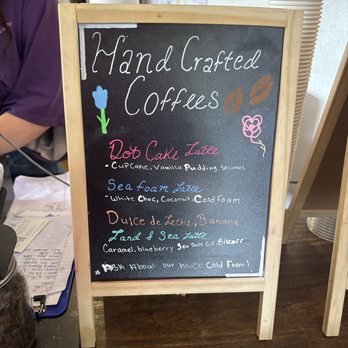 Hand Crafted
Coffees
Dot Cake Latte
• Cupcake, Vanilla Pudding,
Sea Foam Latte
White Choc, Coconut, Cold foam
Dulce de Leche, Banana
Land & Sea Latte
Caramel, blueberry Sea Salt C.F. Biscoff
* Ask About our house Cold Foam!